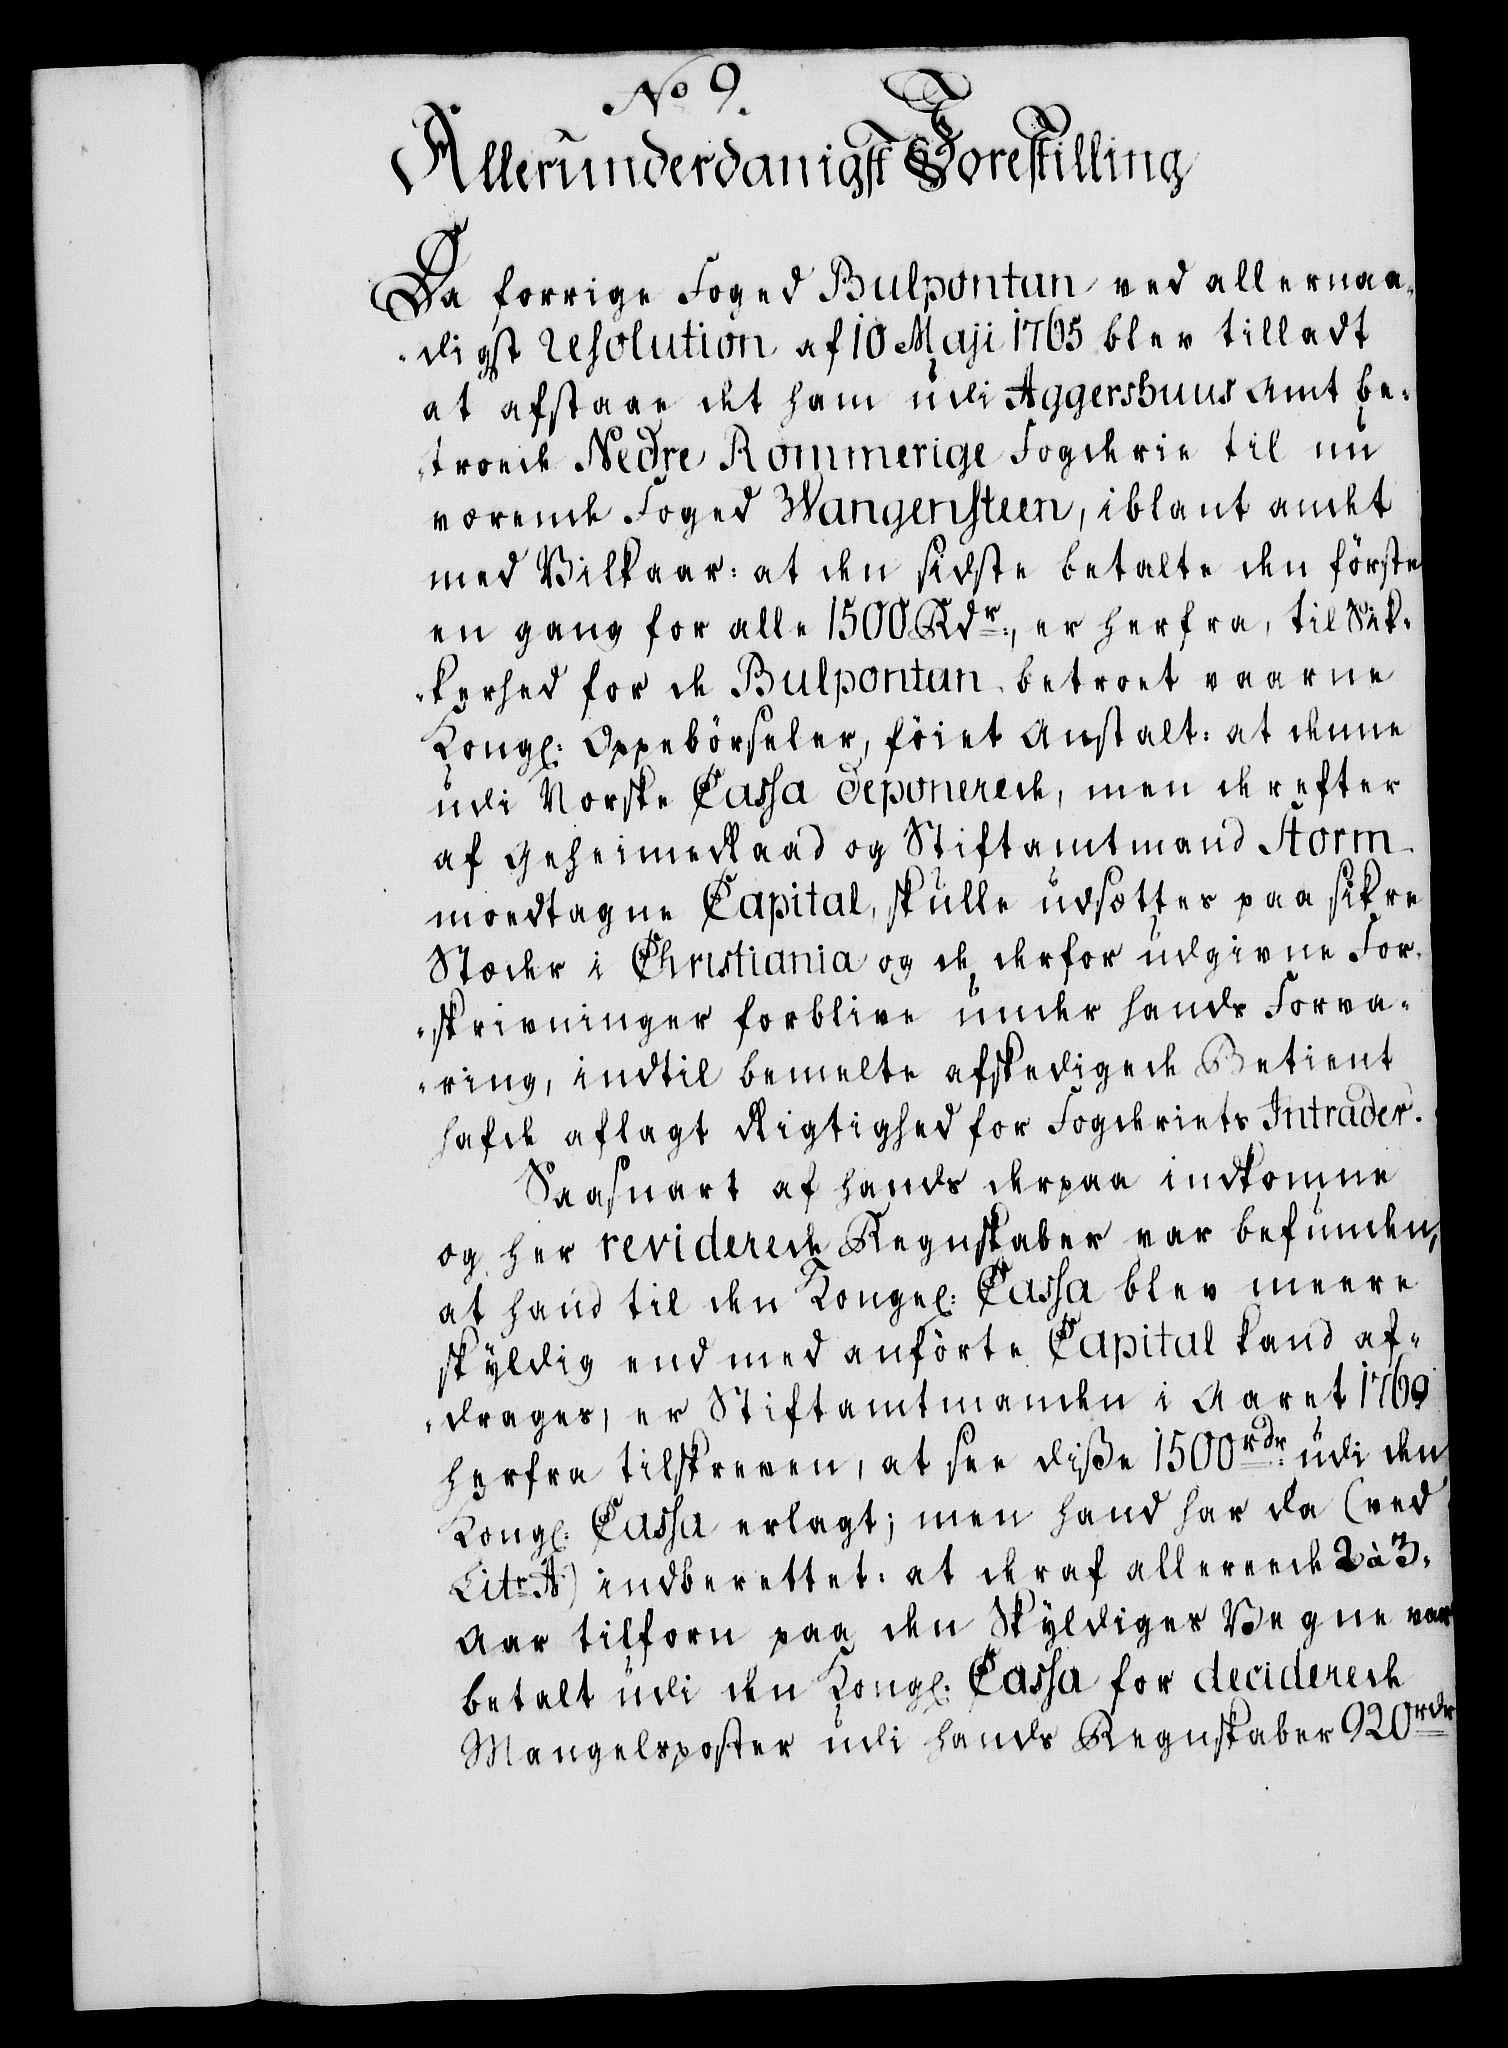 No 9.
Allerunderdanigst Forestilling
Da forrige Foged Bulpontan ved allernaa-
-digst resolution af 10 Maji 1765 blev tilladt
at afstaae det ham udi Aggershuus Amt be-
-troede Nedre Rommerige Fogderie til nu
værende Foged Wangensteen, iblant andet
med Vilkaar: at den sidste betalte den förste
en gang for alle 1500 Rdr:, er herfra, til Sik-
-kerhed for de Bulpontan betroet vaarne
Kongl: Oppebörseler, föiet Anstalt: at denne
udi Norske Cassa deponerede, men derefter
af GeheimeRaad og Stiftamtmand Storm
modtagne Capital, skulle udsættes paa sikre
Stæder i Christiania og de derfor udgivne For-
-skrivninger forblive under hands Forva-
-ring, indtil bemelte afskedigede Betient
hafde aflagt Rigtighed for Fogderiets Intrader.
Saasnart af hands derpaa indkomne
og her reviderede Regnskaber var befunden,
at hand til den Kongel: Cassa blev meere
skyldig end med anförte Capital kand af-
-drages, er Stiftamtmanden i Aaret 1769
herfra tilskreven, at see diße 1500 rdr: udi den
Kongl: Cassa erlagt; men hand har da (ved
Litr: A) indberettet: at deraf allereede 2 à 3.
Aar tilforn paa den Skyldiges Vegne var
betalt udi den Kongl: Cassa for deciderede
Mangelsposter udi hands Regnskaber 920 rdr